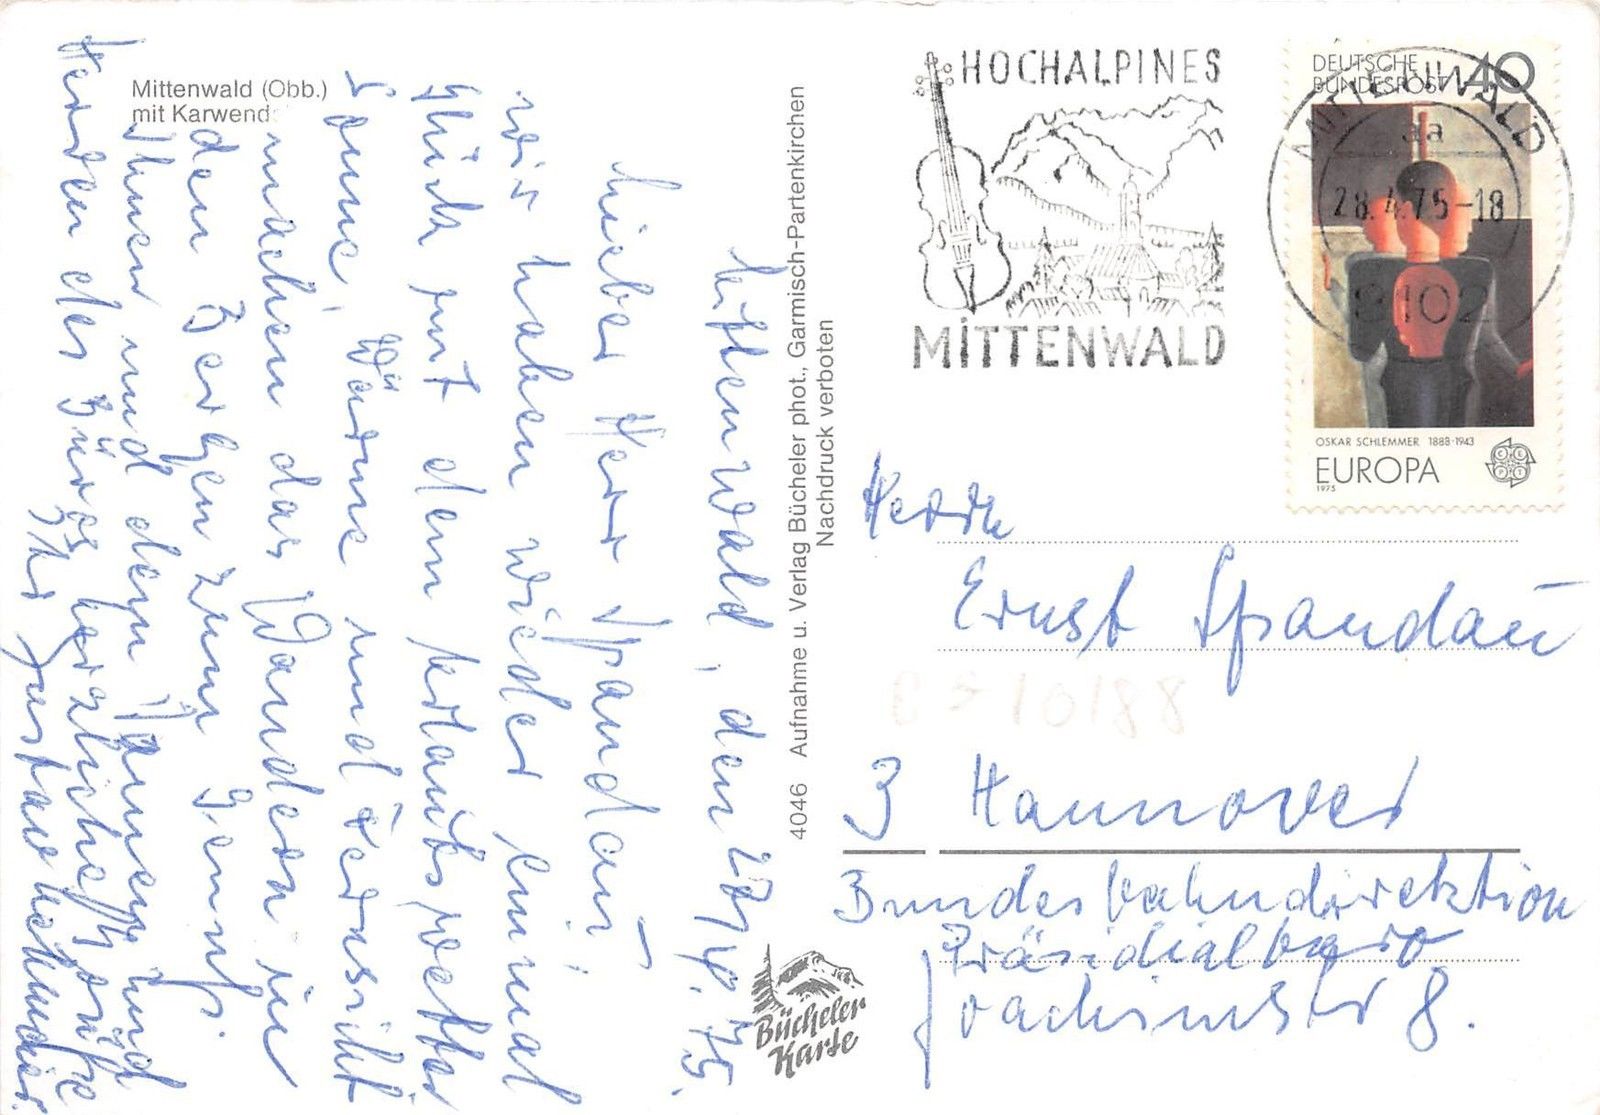 Mittenwald (Obb.)
mit Karwend
Mittenwald, den 28.4.75.
Lieber Herr Spandau!
wir haben wieder einmal
Glück mit dem Urlaubswetter
Sonne, Wärme und Fernsicht
machen das Wandern in
den Bergen zum Genuß.
Ihnen und den Damen und
Herren des Büros herzliche Grüße
Ihr Gustav
4046 Aufnahme u. Verlag Bücheler phot., Garmisch-Partenkirchen
Nachdruck verboten
Bücheler
Karte
HOCHALPINES
MITTENWALD
DEUTSCHE
BUNDESPOST 40
MITTENWALD
aa
28.4.75-18
8102
OSKAR SCHLEMMER 1888-1943
EUROPA
CEPT
1975
Herrn
Ernst Spandau
3 Hannover
Bundesbahndirektion
Präsidialbüro
Joachimstr 8.